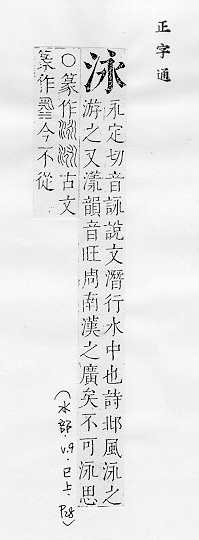 正字通
泳
永定切音詠說文潛行水中也詩邶風泳之
游之又漾韻音旺周南漢之廣矣不可泳思
○篆作古文
篆作今不從
(水部.v.9.巳上.P28)